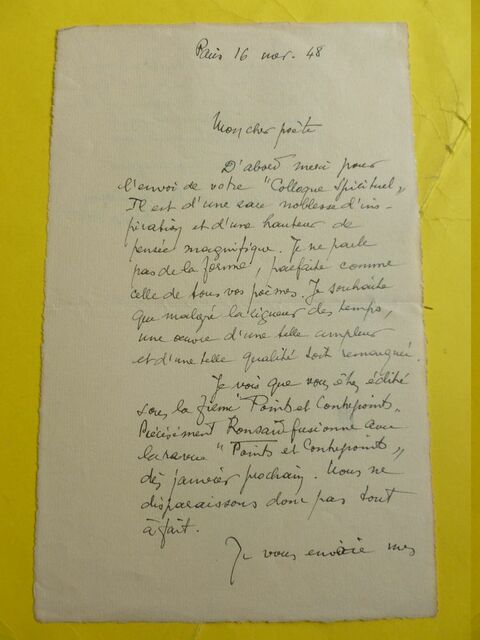 Paris 16 nov. 48
Mon cher poète
D'abord merci pour
l'envoi de votre "Colloque Spirituel"
Il est d'une rare noblesse d'ins-
piration et d'une hauteur de
pensée magnifique. Je ne parle
pas de la forme, parfaite comme
celle de tous vos poèmes. Je souhaite
que malgré la rigueur des temps,
une œuvre d'une telle ampleur
et d'une telle qualité soit remarquée.
Je vois que vous êtes édité
sous la Points et Contrepoints.
Précisément Ronsard fusionne avec
la revue "Points et Contrepoints"
dès janvier prochain. Nous ne
disparaissons donc pas tout
à fait.
Je vous envoie mes